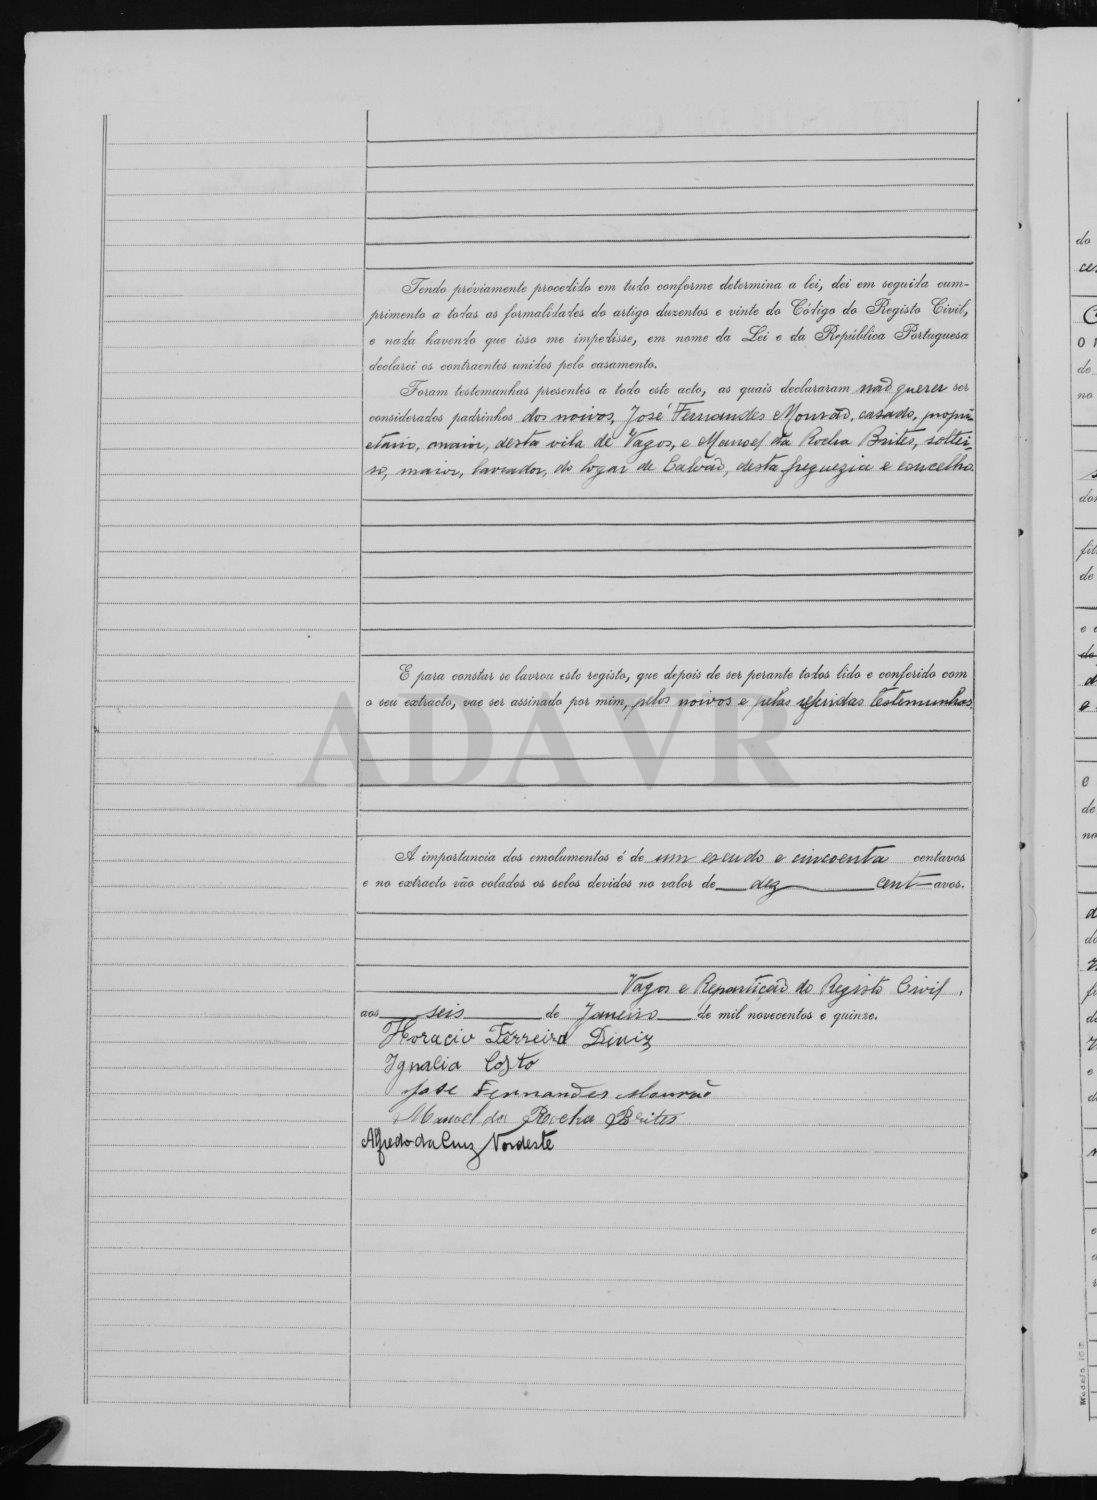 Tendo préviamente procedido em tudo conforme determina a lei, dei em seguida cum-
primento a todas as formalidades do artigo duzentos e vinte do Código do Registo Civil,
e nada havendo que isso me impedisse, em nome da Lei e da República Portuguesa
declarei os contraentes unidos pelo casamento.
Foram testemunhas presentes a todo este acto, as quais declararam não querer ser
considerados padrinhos dos noivos, José Fernandes Mourão, casado, propri-
etario, maior, desta vila de Vagos, e Manoel da Rocha Brites, soltei-
ro, maior, lavrador, do logar de Calvão, desta freguezia e concelho.
E para constar se lavrou este registo, que depois de ser perante todos lido e conferido com
o seu extracto, vae ser assinado por mim, pelos noivos e pelas referidas testemunhas.
ADAVR
A importancia dos emolumentos é de um escudo e cincoenta centavos
e no extracto vão colados os selos devidos no valor de dez cent avos.
Vagos e Repartição do Registo Civil,
aos seis de Janeiro de mil novecentos e quinze.
Horacio Ferreira Diniz
Ignalia Costo
José Fernandes Mourão
Manoel da Rocha Brites
Alfredo da Cruz Nordeste
Modelo